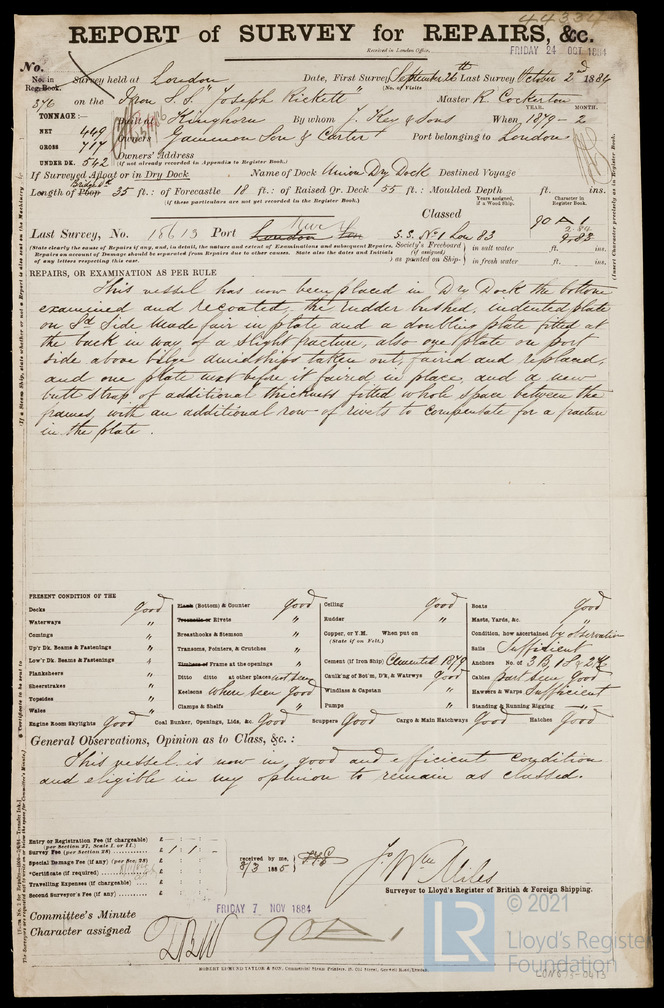 44334
REPORT of SURVEY for REPAIRS, &c.
Received in London Office,
FRIDAY 24 OCT 1884
No.
No. in Reg. Book. Survey held at London Date, First Survey September 26th Last Survey October 2nd 1884
(No. of Visits
376 on the Iron S.S. "Joseph Rickett" Master R Cockerton
TONNAGE:— Built at Kinghorn By whom J. Key & Sons When, 1879 - 2
YEAR. MONTH.
NET 449
GROSS 717 Owners Gammon Son & Carter Port belonging to London
UNDER DK. 542 Owners' Address
(If not already recorded in Appendix to Register Book.)
If Surveyed Afloat or in Dry Dock Name of Dock Union Dry Dock Destined Voyage
Length of Poop Bridge Dk 35 ft.: of Forecastle 18 ft.: of Raised Qr. Deck 55 ft.: Moulded Depth ft. ins.
(If these particulars are not yet recorded in the Register Book.)
Years assigned, if a Wood Ship.
Character in Register Book.
Classed 90 A 1
2.84
9.83
Last Survey, No. 18613 Port London S.S. No 1 Lon 83
(State clearly the cause of Repairs if any, and, in detail, the nature and extent of Examinations and subsequent Repairs.
Repairs on account of Damage should be separated from Repairs due to other causes. State also the dates and Initials
of any letters respecting this case.
Society's Freeboard (if assigned) as painted on Ship- in salt water ft. ins.
in fresh water ft. ins.
REPAIRS, OR EXAMINATION AS PER RULE
This vessel has now been placed in Dry Dock the bottom
examined and recoated, the rudder bushed, indented plate
on Sd Side, made fair in place and a doubling plate fitted at
the back in way of a slight fracture, also one plate on port
side above bilge amidships taken out, faired and replaced,
and one plate next before it faired in place, and a new
butt strap of additional thickness fitted whole space between the
frames, with an additional row of rivets to compensate for a fracture
in the plate.
PRESENT CONDITION OF THE
Decks good
Waterways "
Comings "
Up'r Dk. Beams & Fastenings "
Low'r Dk. Beams & Fastenings "
Planksheers "
Sheerstrakes "
Topsides "
Wales "
Engine Room Skylights Good
Plank (Bottom) & Counter good
Treenails or Rivets "
Breasthooks & Stemson "
Transoms, Pointers, & Crutches "
Timbers or Frame at the openings "
Ditto ditto at other places not seen
Keelsons where seen good
Clamps & Shelfs "
Coal Bunker, Openings, Lids, &c. Good
Ceiling good
Rudder "
Copper, or Y.M. When put on
(State if on Felt.)
Cement (if Iron Ship) Cemented 1879
Caulk'ng of Bot'm, D'k, & Waterw'ys Good
Windlass & Capstan "
Pumps "
Scuppers Good
Cargo & Main Hatchways Good
Boats Good
Masts, Yards, &c. "
Condition, how ascertained by observation
Sails Sufficient
Anchors No. of 3 B, 1 S & 2 K
Cables part seen Good
Hawsers & Warps Sufficient
Standing & Running Rigging "
Hatches Good
General Observations, Opinion as to Class, &c. :
This vessel is now in good and efficient condition
and eligible in my opinion to remain as classed.
Entry or Registration Fee (if chargeable) £
(per Section 27, Scale I. or II.)
Survey Fee (per Section 28) £ 1 : 1 : -
Special Damage Fee (if any) (per Sec. 28) £
*Certificate (if required) £
Travelling Expenses (if chargeable) £
Second Surveyor's Fee (if any) £
received by me,
3/3 1885
Jo Wm Miles
Surveyor to Lloyd's Register of British & Foreign Shipping.
Committee's Minute FRIDAY 7 NOV 1884
Character assigned 90 A 1
ROBERT EDMUND TAYLOR & SON, Commercial Steam Printers, 19, Old Street, Goswell Road, London.
© 2021
LR Lloyd's Register
Foundation
LON873-0413